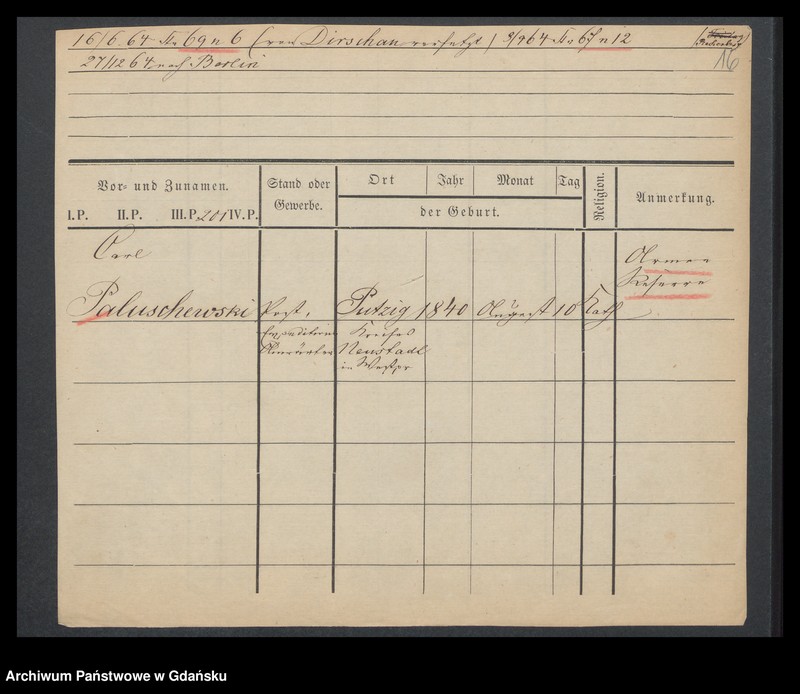 16/6 64 No 69 n 6 (von Dirschau versetzt) 3/9 64 No 67 n 12
27/12 64 nach Berlin
16
Vor- und Zunamen.
Stand oder
Gewerbe.
Ort Jahr Monat Tag
der Geburt.
Religion.
Anmerkung.
I.P. II.P. III.P. 201 IV.P.
Carl
Armee
Reserve
Paluschewski Post, Putzig 1840 August 10 Kath
Expeditions Kreises
Anwärter Neustadt
in Westpr
Archiwum Państwowe w Gdańsku